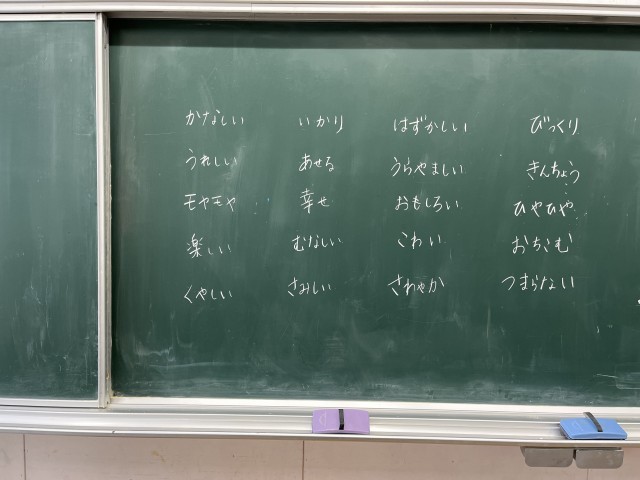 かなしい いかり はずかしい びっくり
うれしい あせる うらやましい きんちょう
モヤモヤ 幸せ おもしろい ひやひや
楽しい むなしい こわい おちこむ
くやしい さみしい さわやか つまらない